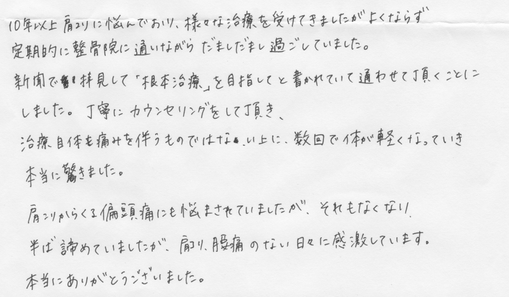 10年以上肩コリに悩んでおり、様々な治療を受けてきましたがよくならず
定期的に整骨院に通いながらだましだまし過ごしていました。
新聞で拝見して「根本治療」を目指してと書かれていて通わせて頂くことに
しました。丁寧にカウンセリングをして頂き、
治療自体も痛みを伴うものではない上に、数回で体が軽くなっていき
本当に驚きました。
肩こりからくる偏頭痛にも悩まされていましたが、それもなくなり、
半ば諦めていましたが、肩コリ、腰痛のない日々に感激しています。
本当にありがとうございました。